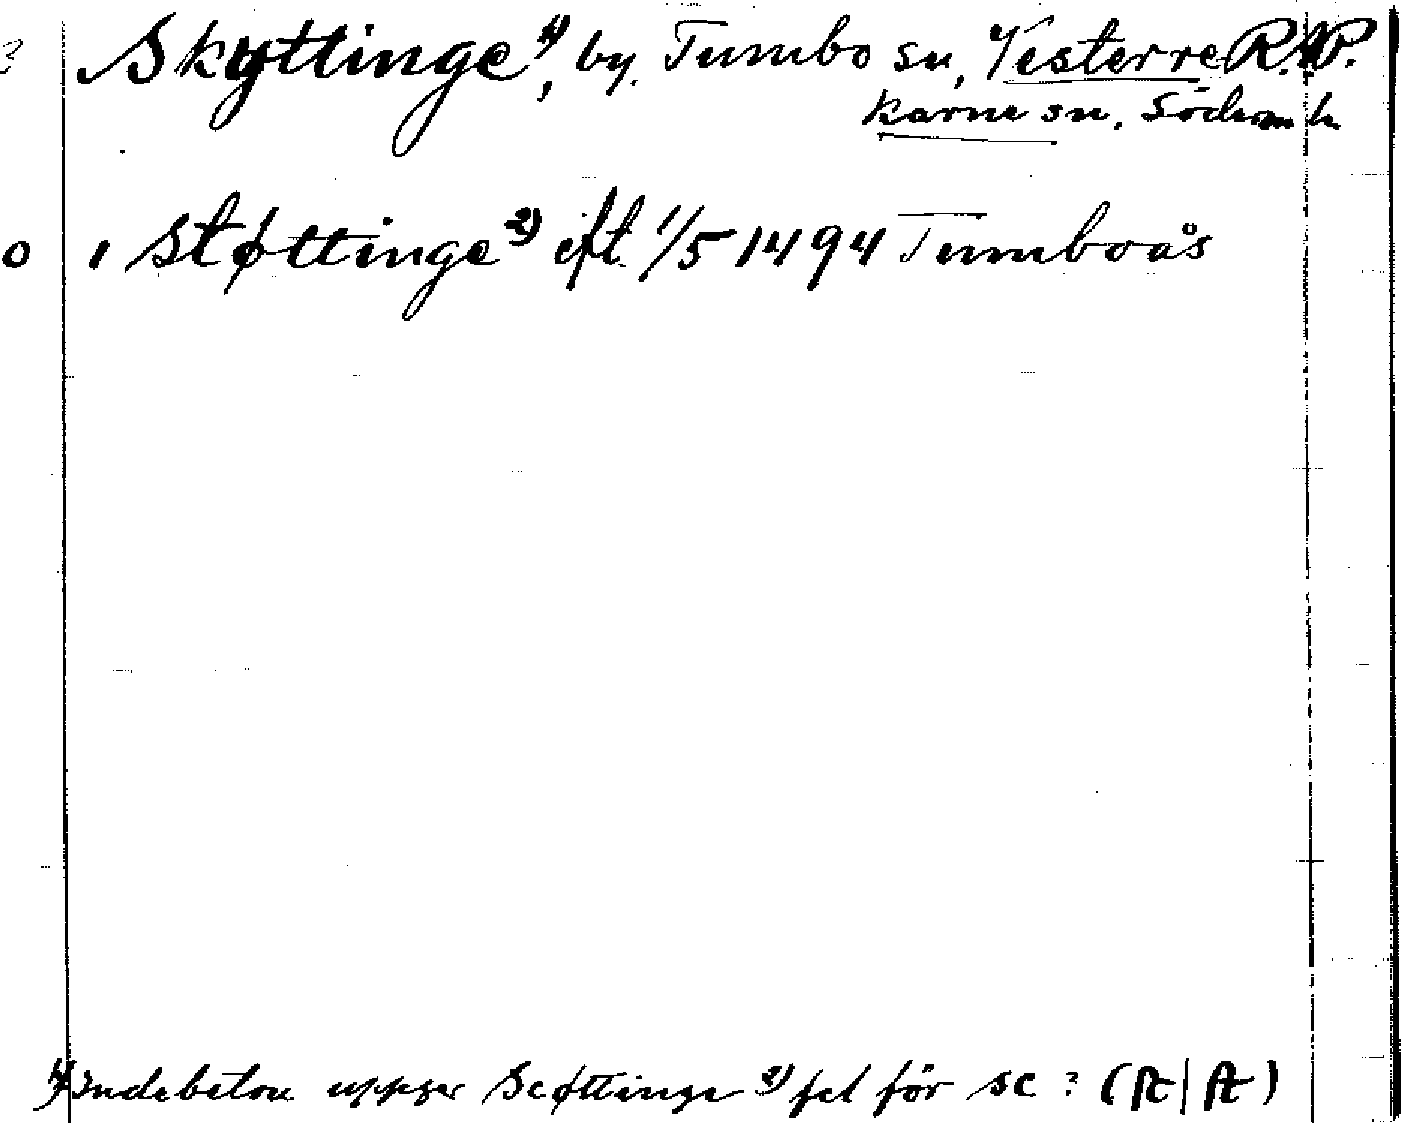 Skyttinge 1), by. Tumbo sn, Vesterre R.W.
karne sn. Söderm l.
o i støttinge 2) eft. 1/5 1494 Tumboås
1) Indebetou uppger Scøttinge 2) fel för sc ? (ſc|ſt)